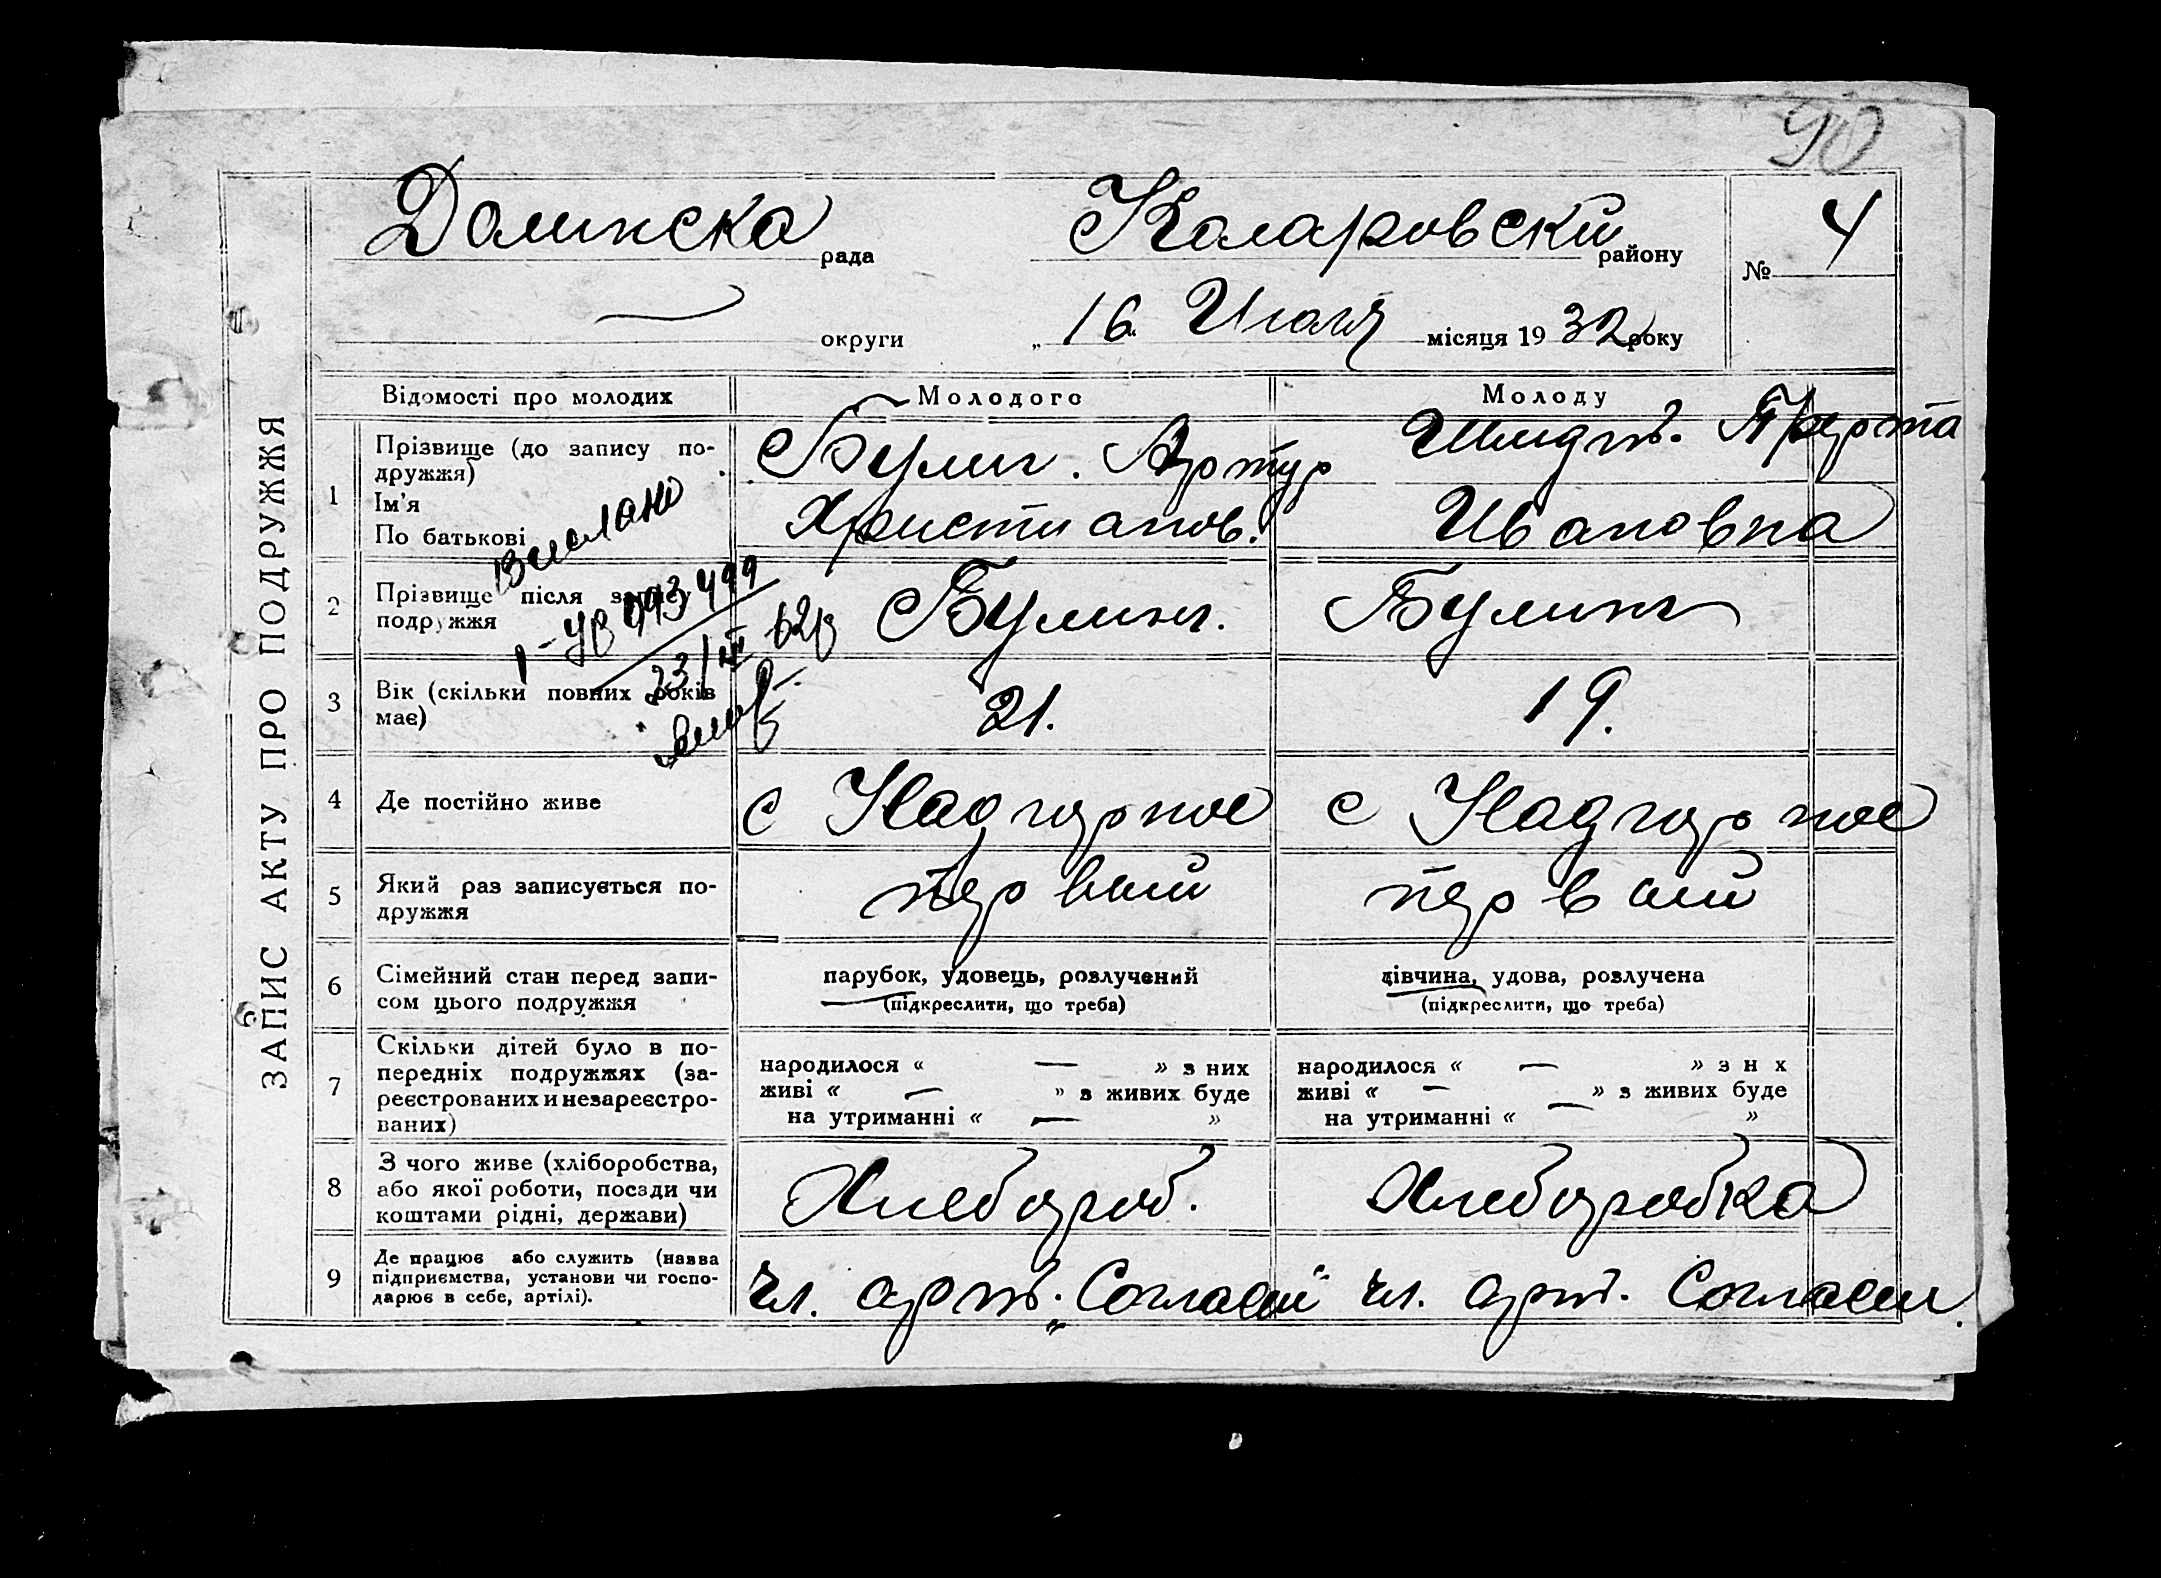 90
Долинска рада Коларовски району № 4
округи „ 16 " Июля місяця 19 32 року
ЗАПИС АКТУ ПРО ПОДРУЖЖЯ
Відомості про молодих Молодого Молоду
1 Прізвище (до запису по-
дружжя)
Ім'я
По батькові
Булиг. Артур
Христианов.
Шмидт. Берта
Ивановна
Вислано
1-УВ 093499
23/III 62г
2 Прізвище після запису
подружжя
Булинг.
Булинг
3 Вік (скільки повних років
має)
21.
19.
4 Де постійно живе
с Надгорное
с Надгорное
5 Який раз записується по-
дружжя
первый
первый
6 Сімейний стан перед запи-
сом цього подружжя
парубок, удовець, розлучений
(підкреслити, що треба)
дівчина, удова, розлучена
(підкреслити, що треба)
7 Скільки дітей було в по-
передніх подружжях (за-
реєстрованих и незареєстро-
ваних)
народилося « — » з них
живі « — » з живих буде
на утриманні « — »
народилося « — » з н х
живі « — » з живих буде
на утриманні « — »
8 З чого живе (хліборобства,
або якої роботи, посади чи
коштами рідні, держави)
Хлебороб.
Хлеборобка
9 Де працює або служить (назва
підприємства, установи чи госпо-
дарює в себе, артілі).
чл. арт. „Согласи"
чл. арт. Согласи.